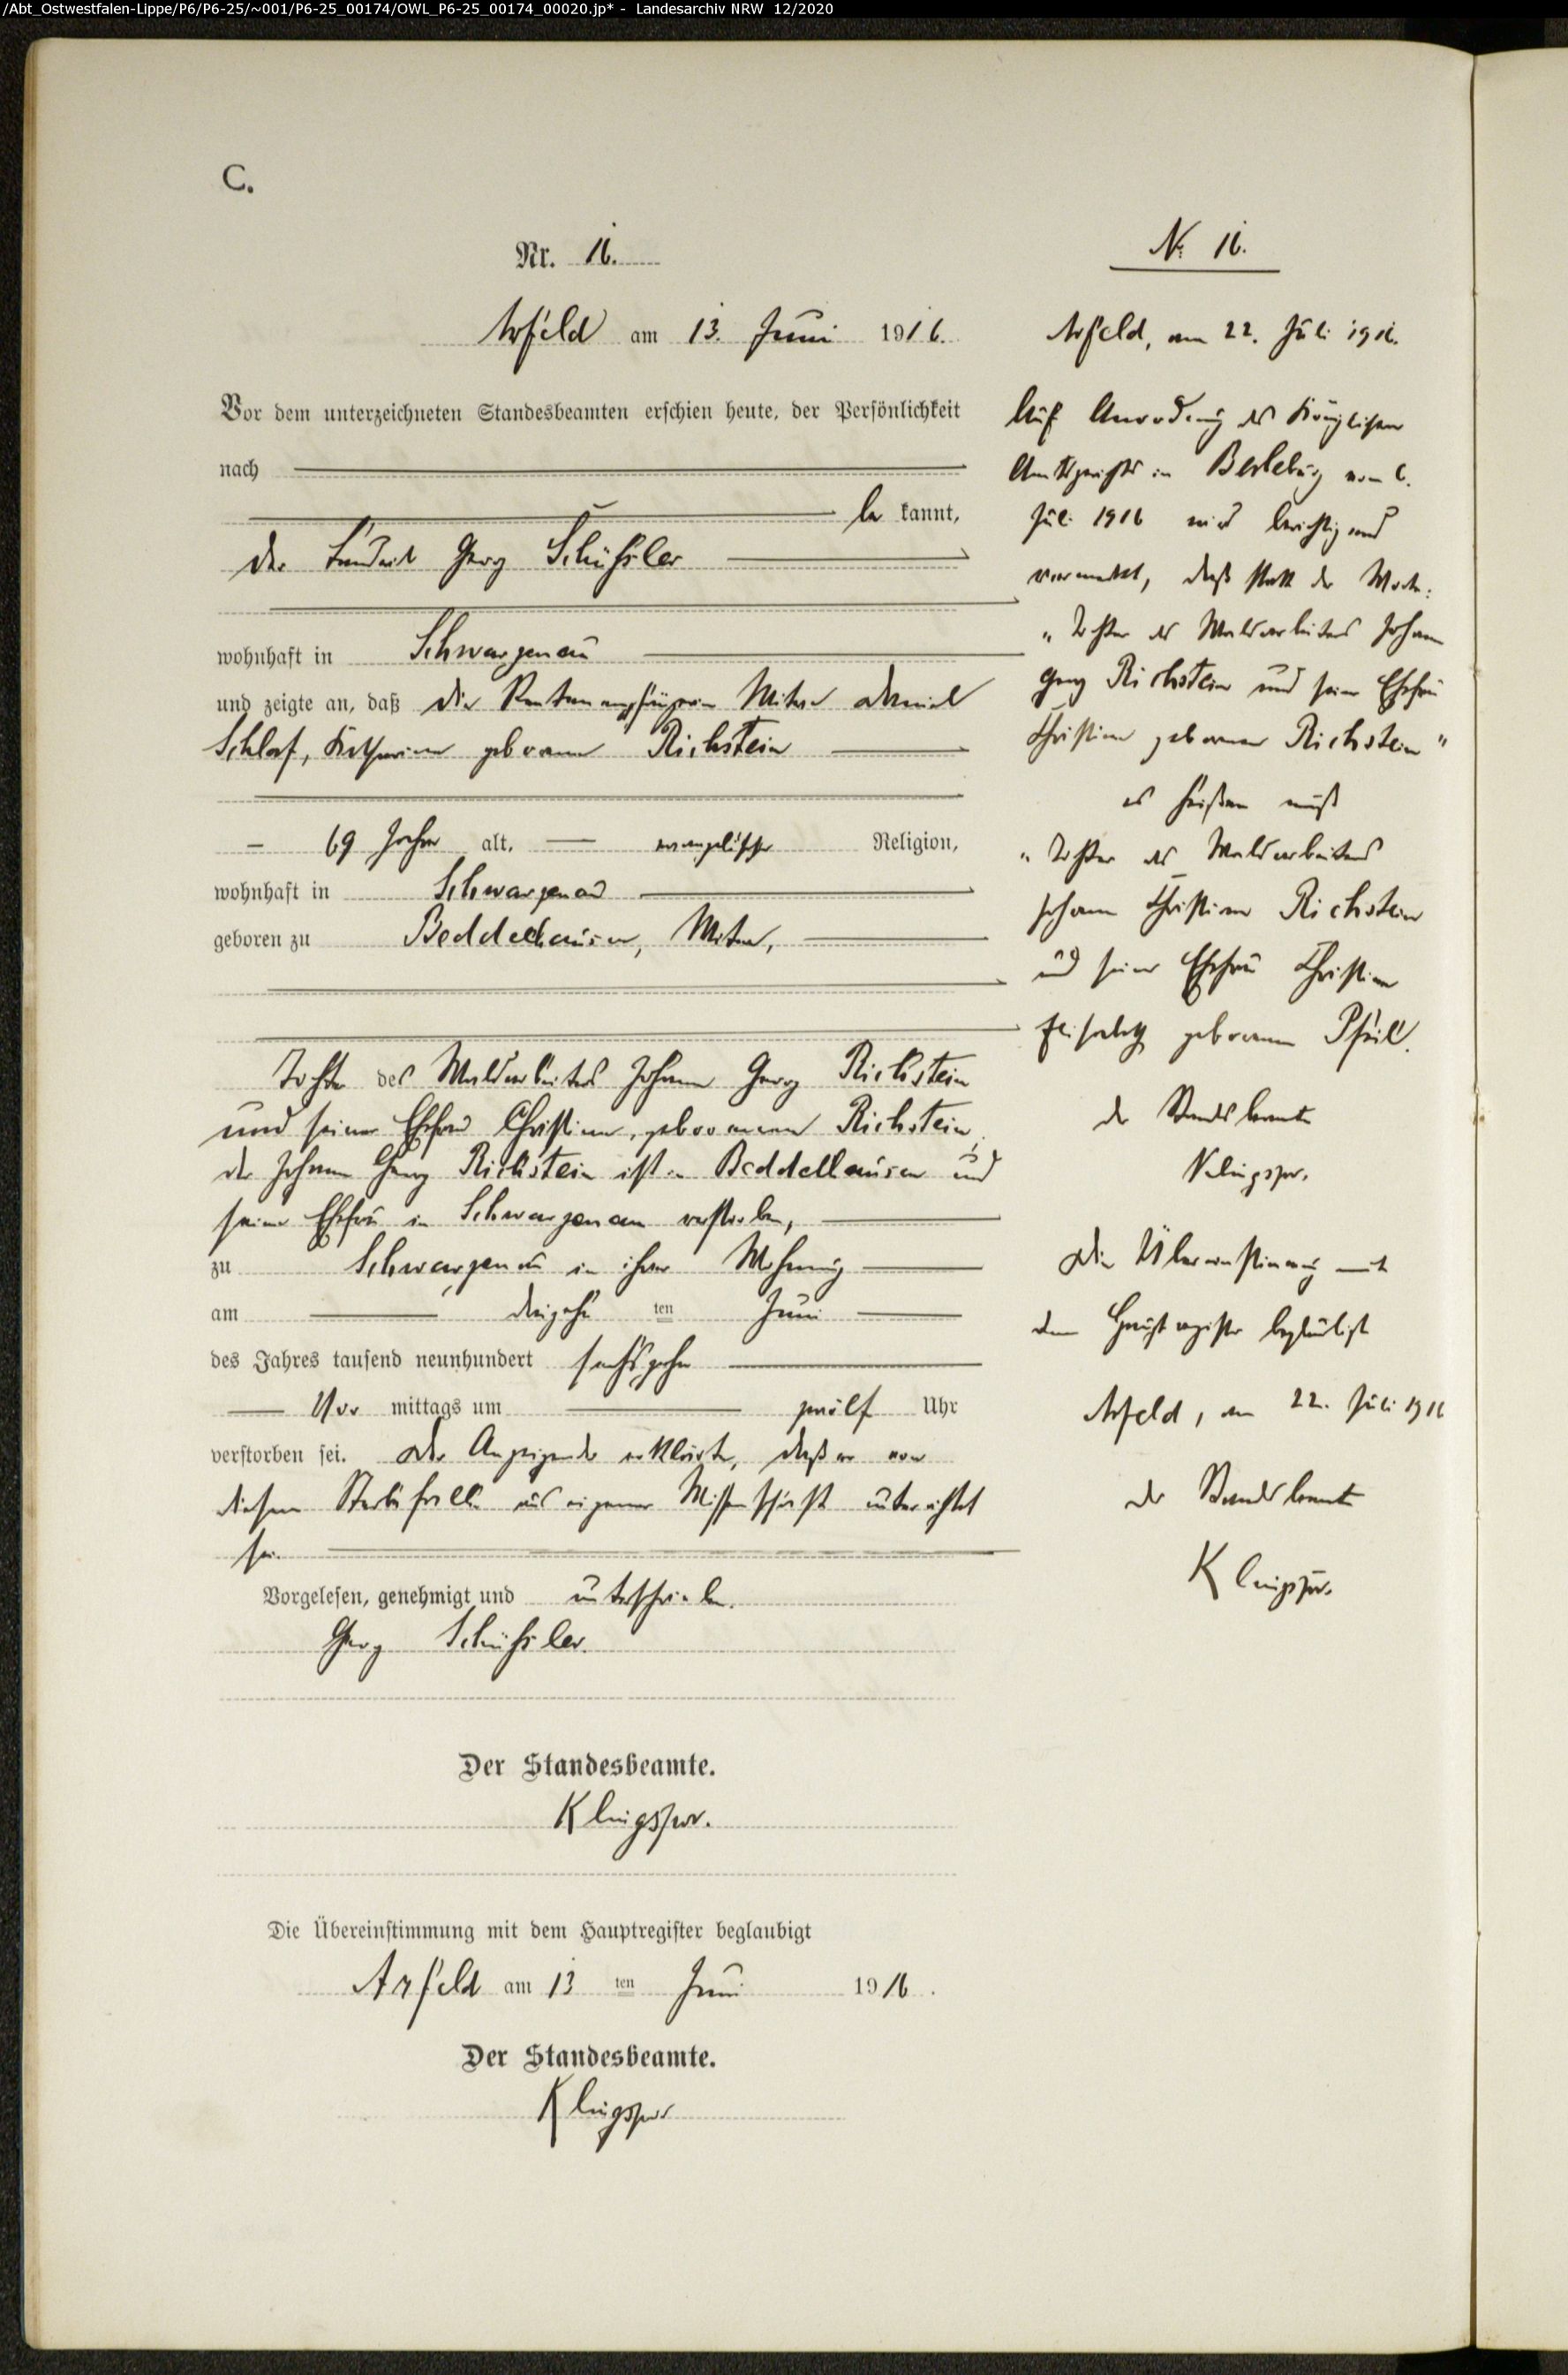 /Abt_Ostwestfalen-Lippe/P6/P6-25/~001/P6-25_00174/OWL_P6-25_00174_00020.jp* - Landesarchiv NRW 12/2020
C.
Nr. 16.
Arfeld am 13. Juni 1916.
Vor dem unterzeichneten Standesbeamten erschien heute, der Persönlichkeit
nach
be kannt,
der Landwirt Georg Schüssler
wohnhaft in Schwarzenau
und zeigte an, daß die Rentenempfängerin Witwe Daniel
Schlaf, Katharine geborene Richstein
69 Jahre alt, evangelischer Religion,
wohnhaft in Schwarzenau
geboren zu Beddelhausen, Witwe,
Tochter des Waldarbeiters Johann Georg Richstein
und seiner Ehefrau Christine, geborenen Richstein,
der Johann Georg Richstein ist in Beddelhausen und
seine Ehefrau in Schwarzenau verstorben,
zu Schwarzenau in ihrer Wohnung
am dreizehn ten Juni
des Jahres tausend neunhundert sechszehn
Vor mittags um zwölf Uhr
verstorben sei. Der Anzeigende erklärte, daß er von
diesem Sterbefalle aus eigener Wissenschaft unterrichtet
sei.
Vorgelesen, genehmigt und unterschrieben.
Georg Schüssler.
Der Standesbeamte.
Klingspor.
Die Übereinstimmung mit dem Hauptregister beglaubigt
Arfeld am 13 ten Juni 1916.
Der Standesbeamte.
Klingspor
N: 16.
Arfeld, am 22. Juli 1916.
Auf Anordnung des Königlichen
Amtsgerichts in Berleburg vom 6.
Juli 1916 wird berichtigend
vermerkt, daß statt der Worte:
"Tochter des Waldarbeiters Johann
Georg Richstein und seiner Ehefrau
Christine geborenen Richstein"
es heißen muß
"Tochter des Waldarbeiters
Johann Christian Richstein
und seiner Ehefrau Christine
Elisabeth geborenen Pfeil.
der Standesbeamte
Klingspor.
Die Übereinstimmung mit
dem Hauptregister beglaubigt
Arfeld, am 22. Juli 1916
der Standesbeamte
Klingspor.